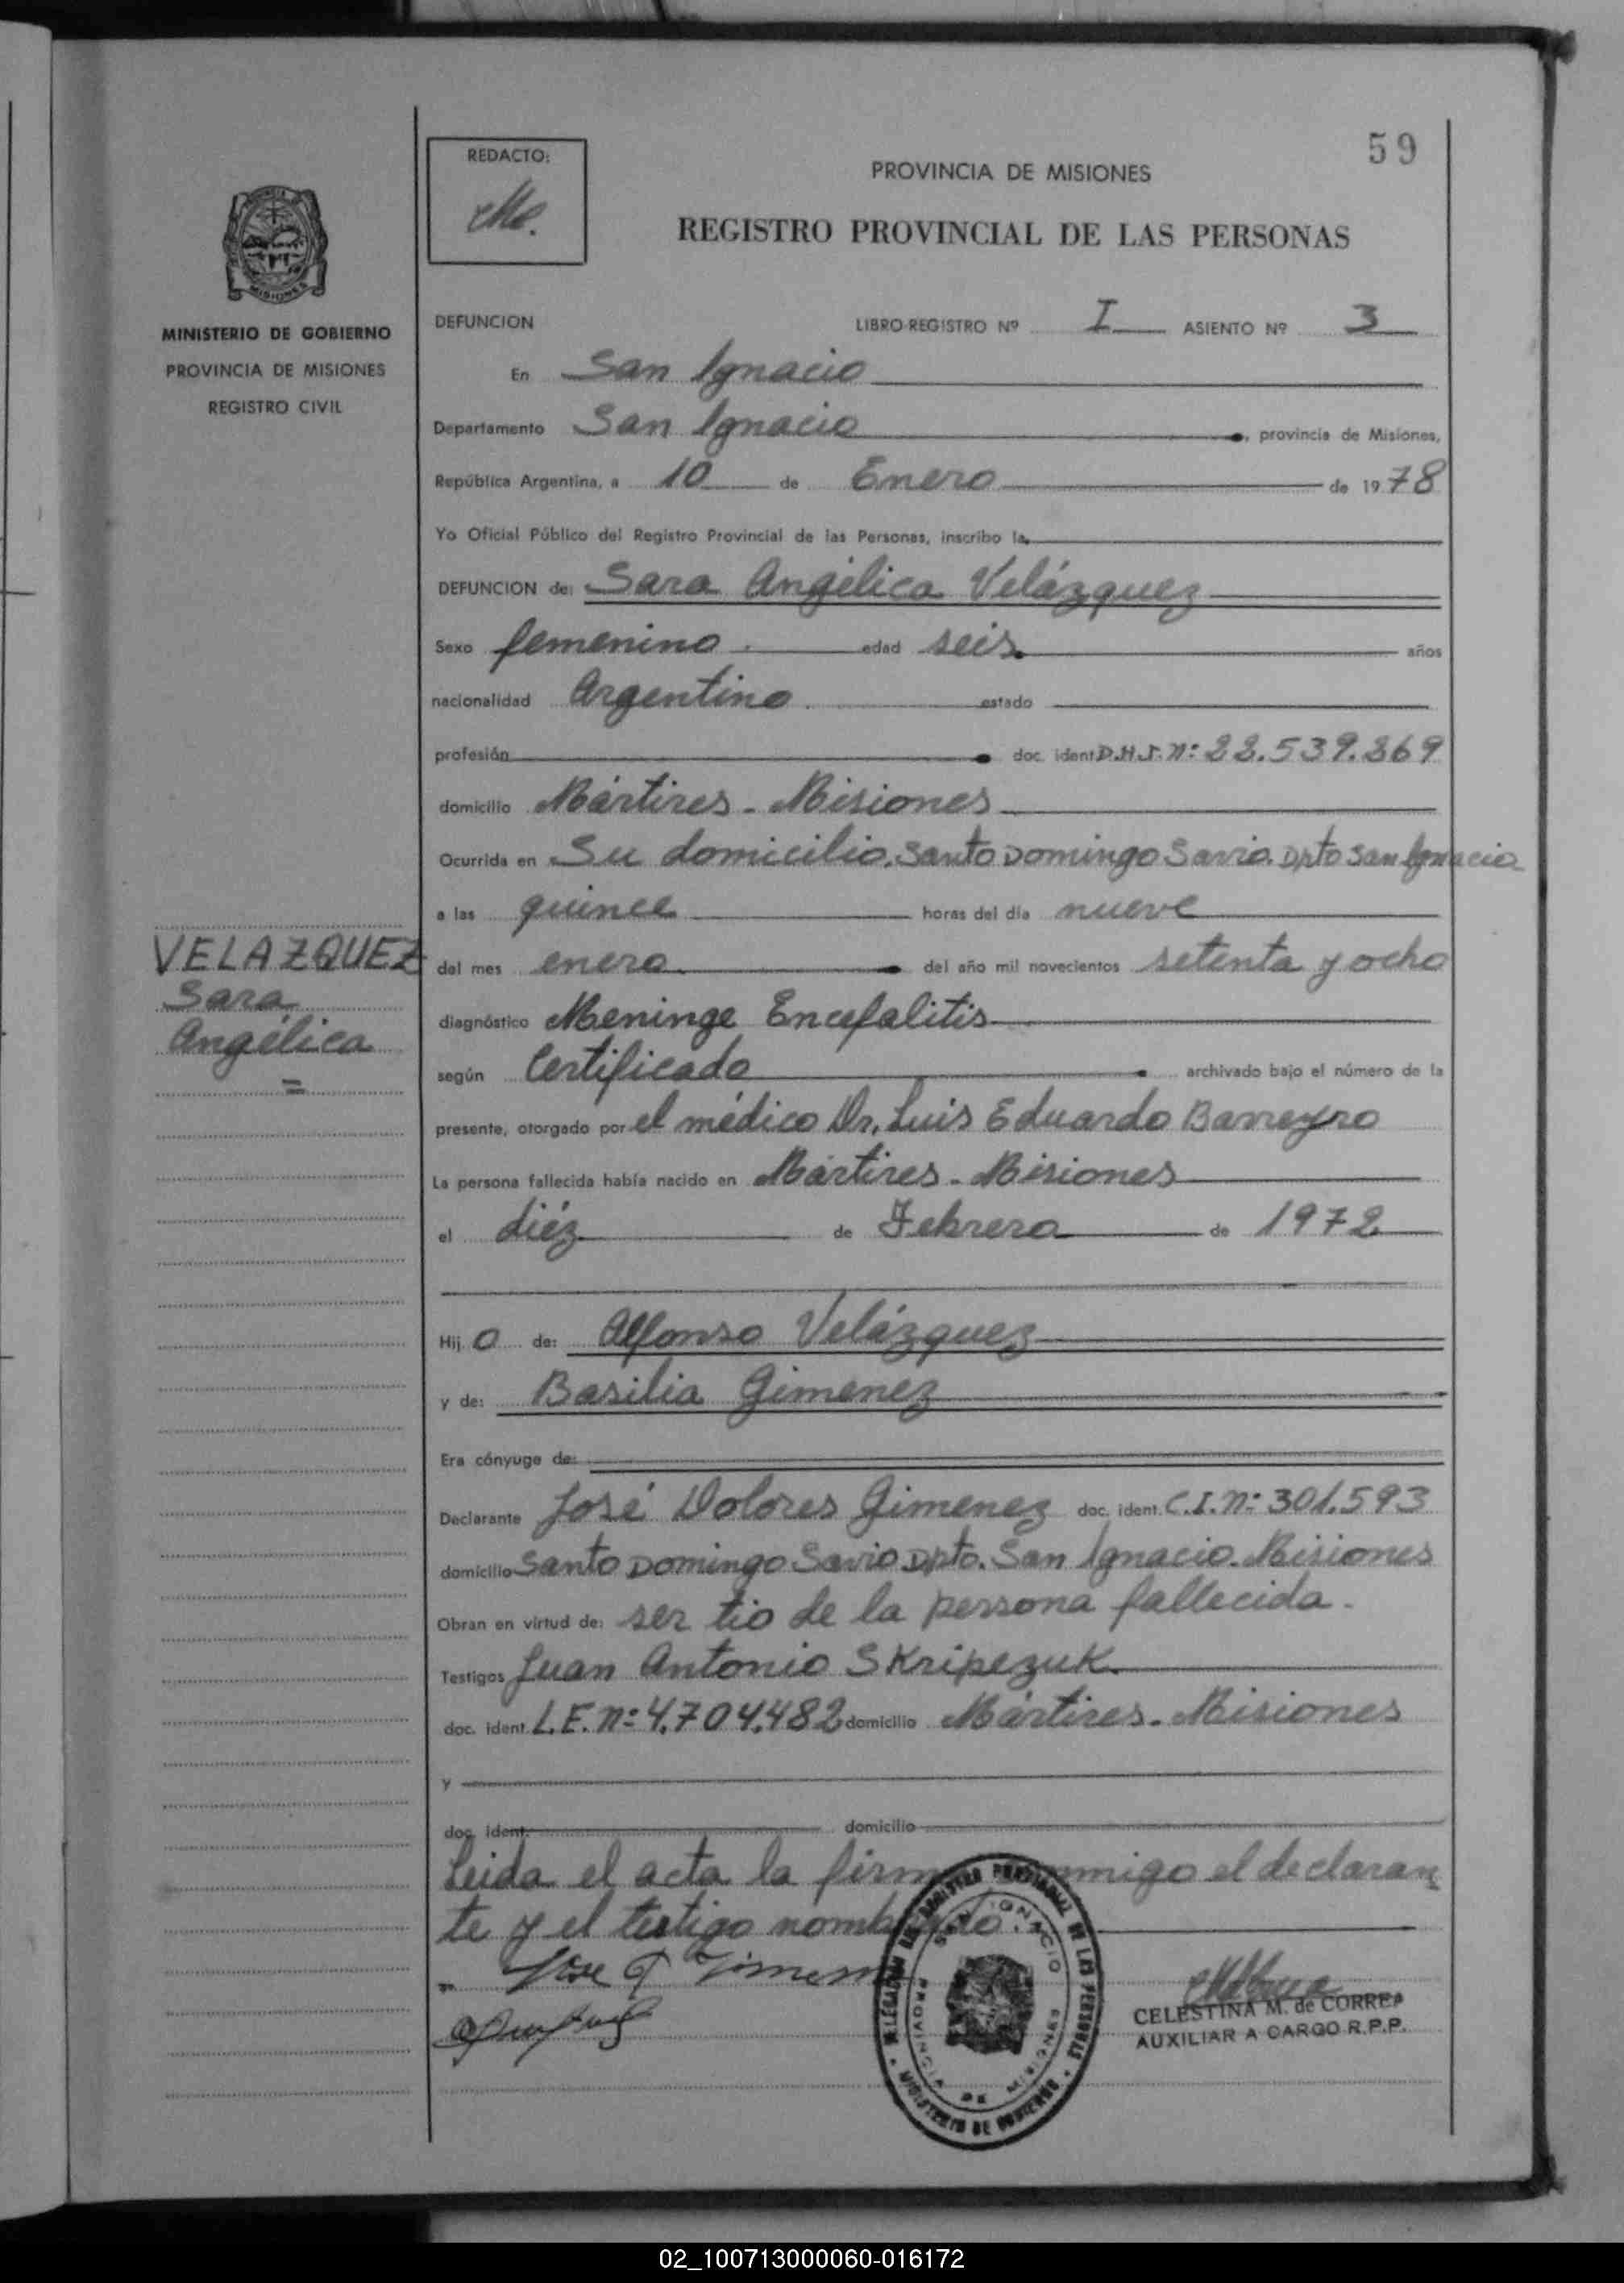 59
REDACTO:
PROVINCIA DE MISIONES
REGISTRO PROVINCIAL DE LAS PERSONAS
MISIONES
MINISTERIO DE GOBIERNO
PROVINCIA DE MISIONES
REGISTRO CIVIL
DEFUNCION LIBRO-REGISTRO Nº I ASIENTO Nº 3
En San Ignacio
Departamento San Ignacio, provincia de Misiones,
República Argentina, a 10 de Enero de 1978
Yo Oficial Público del Registro Provincial de las Personas, inscribo la
DEFUNCION de: Sara Angélica Velázquez
Sexo femenino. edad seis años
nacionalidad Argentina estado
profesión doc. ident. D.N.I. nº: 22.539.269
domicilio Mártires - Misiones
Ocurrida en Su domicilio. Santo Domingo Savio. Dpto San Ignacio
a las quince horas del día nueve
VELAZQUEZ
Sara
Angélica
=
del mes enero del año mil novecientos setenta y ocho
diagnóstico Meninge Encefalitis
según Certificado archivado bajo el número de la
presente, otorgado por el médico Dr. Luis Eduardo Barreyro
La persona fallecida había nacido en Mártires - Misiones
el diéz de Febrero de 1972
Hij o de: Alfonso Velázquez
y de: Basilia Gimenez
Era cónyuge de:
Declarante José Dolores Gimenez doc. ident. C.I. nº: 301.593
domicilio Santo Domingo Savio Dpto. San Ignacio. Misiones
Obran en virtud de: ser tio de la persona fallecida.
Testigos Juan Antonio Skripezuk
doc. ident. L.E. nº: 4.704.482 domicilio Mártires - Misiones
y
doc. ident. domicilio
Leida el acta la firma conmigo el declaran
te y el testigo nombrado.
CELESTINA M. de CORREA
AUXILIAR A CARGO R.P.P.
DELEGACION DEL REGISTRO PROVINCIAL DE LAS PERSONAS
MINISTERIO DE GOBIERNO
SAN IGNACIO
PROVINCIA DE MISIONES
02_100713000060-016172